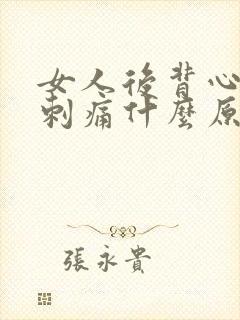 女人後背心
刺痛什麼原
張永貴